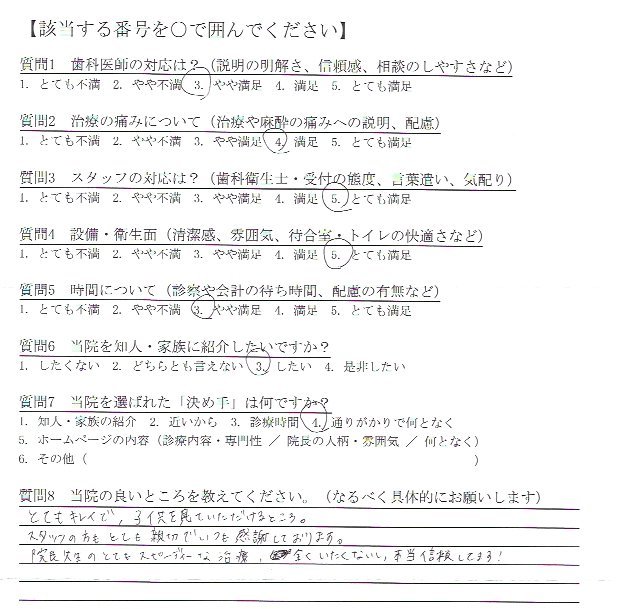 【該当する番号を○で囲んでください】
質問1 歯科医師の対応は?(説明の明解さ、信頼感、相談のしやすさなど)
1. とても不満 2. やや不満 3. やや満足 4. 満足 5. とても満足
質問2 治療の痛みについて(治療や麻酔の痛みへの説明、配慮)
1. とても不満 2. やや不満 3. やや満足 4. 満足 5. とても満足
質問3 スタッフの対応は?(歯科衛生士・受付の態度、言葉遣い、気配り)
1. とても不満 2. やや不満 3. やや満足 4. 満足 5. とても満足
質問4 設備・衛生面(清潔感、雰囲気、待合室・トイレの快適さなど)
1. とても不満 2. やや不満 3. やや満足 4. 満足 5. とても満足
質問5 時間について(診察や会計の待ち時間、配慮の有無など)
1. とても不満 2. やや不満 3. やや満足 4. 満足 5. とても満足
質問6 当院を知人・家族に紹介したいですか?
1. したくない 2. どちらとも言えない 3. したい 4. 是非したい
質問7 当院を選ばれた「決め手」は何ですか?
1. 知人・家族の紹介 2. 近いから 3. 診療時間 4. 通りがかりで何となく
5. ホームページの内容(診療内容・専門性 / 院長の人柄・雰囲気 / 何となく)
6. その他( )
質問8 当院の良いところを教えてください。(なるべく具体的にお願いします)
とてもキレイで、子供を見ていただけるところ。
スタッフの方もとても親切でいつも感謝しております。
院長先生のとてもスピーディーな治療、全くいたくないし、本当信頼してます!